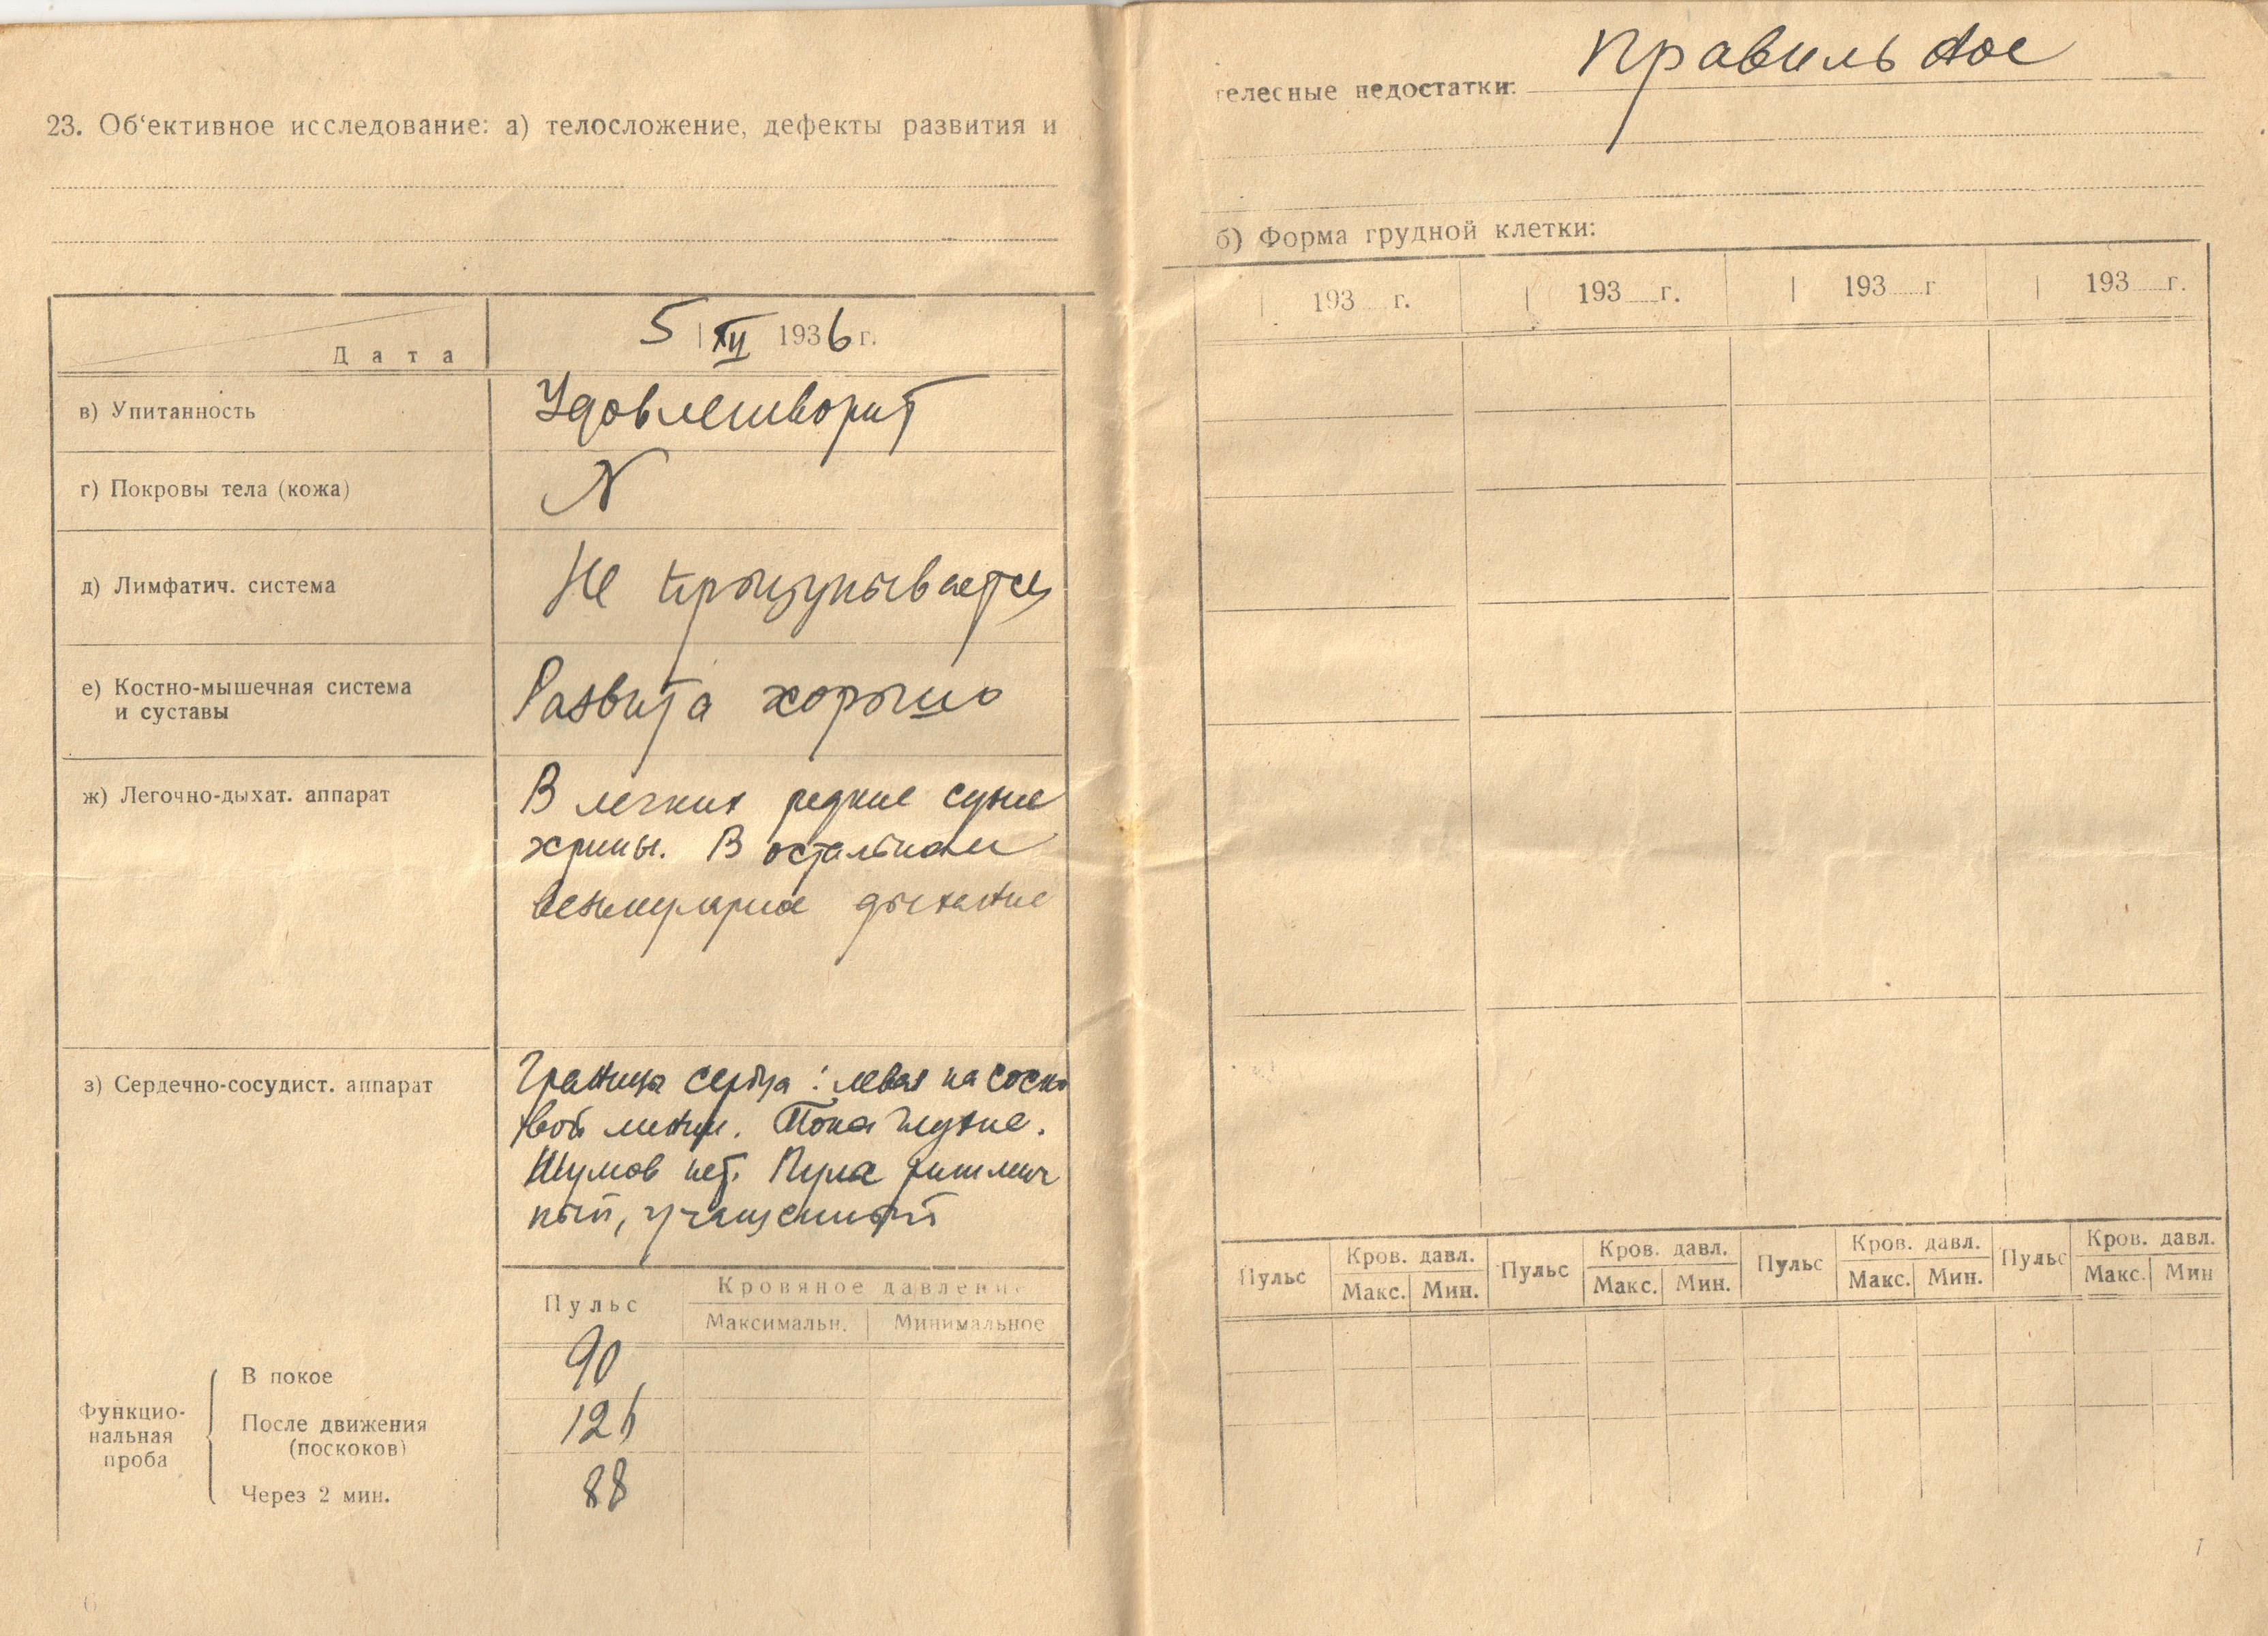 23. Об'ективное исследование: а) телосложение, дефекты развития и
Дата
5 | XII 1936 г.
в) Упитанность
Удовлетворит
г) Покровы тела (кожа)
N
д) Лимфатич. система
Не прощупывается
е) Костно-мышечная система
и суставы
Развита хорошо
ж) Легочно-дыхат. аппарат
В легких редкие сухие
хрипы. В остальном
дыхание
з) Сердечно-сосудист. аппарат
Граница сердца: левая на соско
вой линии. Тона глухие.
Шумов нет. Пульс ритмич
ный, учащенный
Пульс
Кровяное давление
Максимальн.
Минимальное
Функцио-
нальная
проба
В покое
90
После движения
(поскоков)
12
Через 2 мин.
88
6
телесные недостатки:
Правильное
б) Форма грудной клетки:
| 193 г.
| 193 г.
| 193 г
| 193 г.
Пульс
Кров. давл.
Макс.
Мин.
Пульс
Кров. давл.
Макс.
Мин.
Пульс
Кров. давл.
Макс.
Мин.
Пульс
Кров. давл.
Макс.
Мин